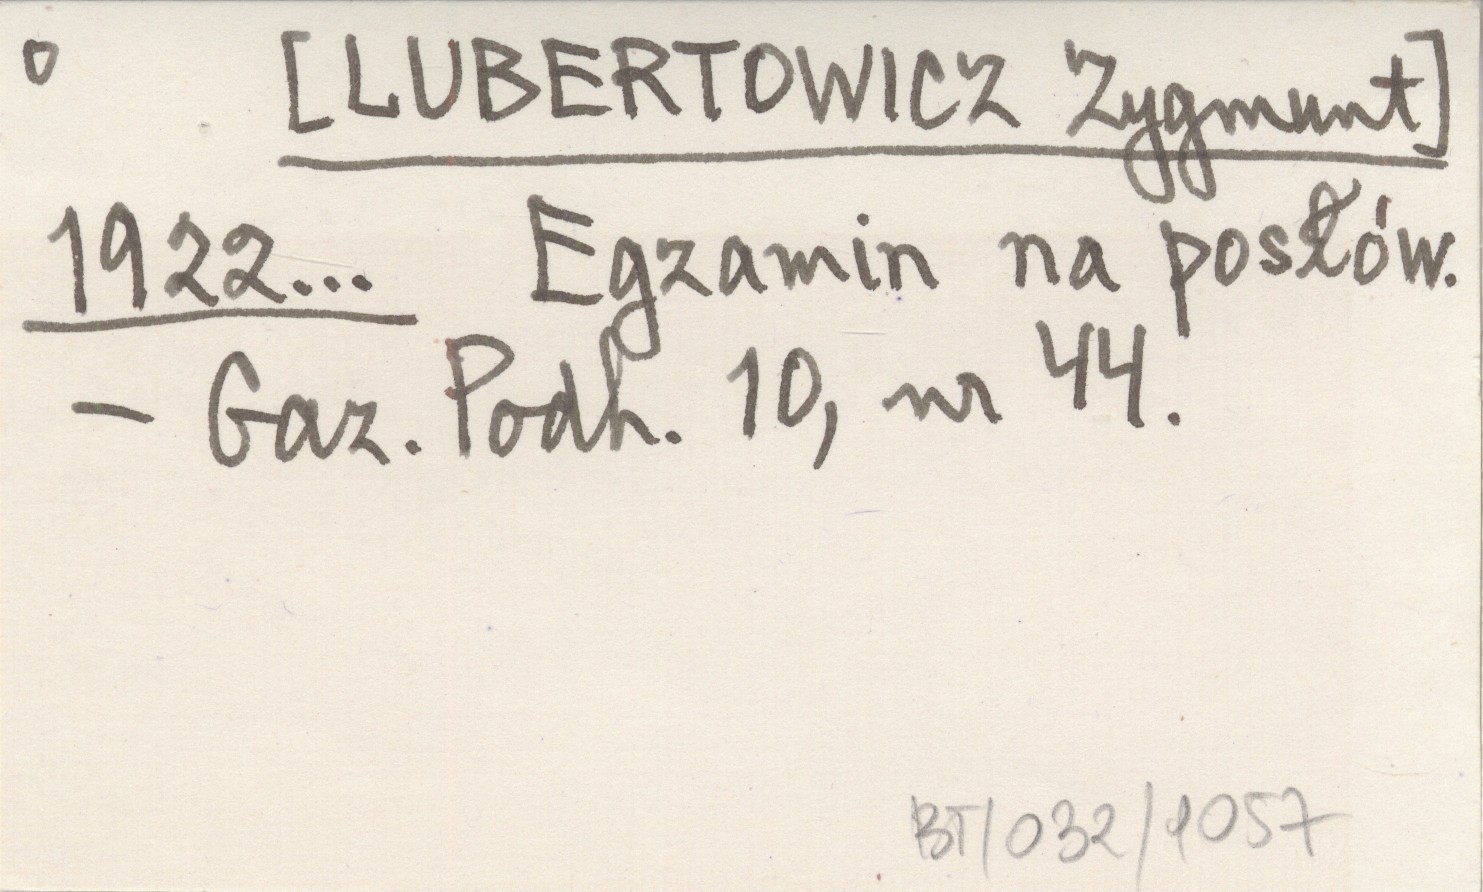 o [LUBERTOWICZ Zygmunt]
1922... Egzamin na posłów.
– Gaz. Podh. 10, nr 44.
BT/032/1057